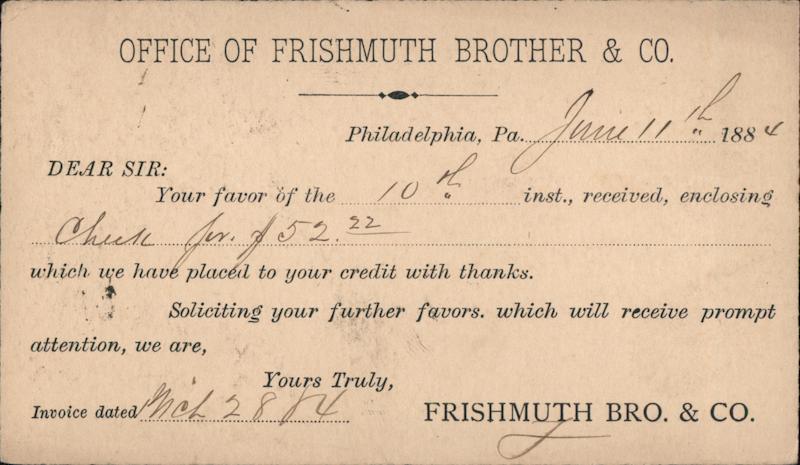 OFFICE OF FRISHMUTH BROTHER & CO.
Philadelphia, Pa. June 11th 1884
DEAR SIR:
Your favor of the 10th inst., received, enclosing
Check for $52.22
which we have placed to your credit with thanks.
Soliciting your further favors. which will receive prompt
attention, we are,
Yours Truly,
Invoice dated Mch 28 84 FRISHMUTH BRO. & CO.